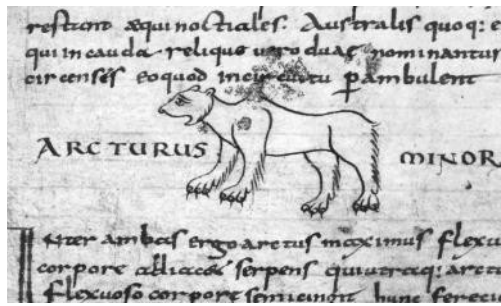 restiant æquinoctiales. Australis quoq: e
qui in cauda reliquo uero duae nominantur
circenses eoquod incircuitu pambulent
ARCTURUS MINOR
Nter ambas ergo arctus maximus flexu
corpore serpens quiutraq: arct
flexuoso corpore semicingit hunc fere